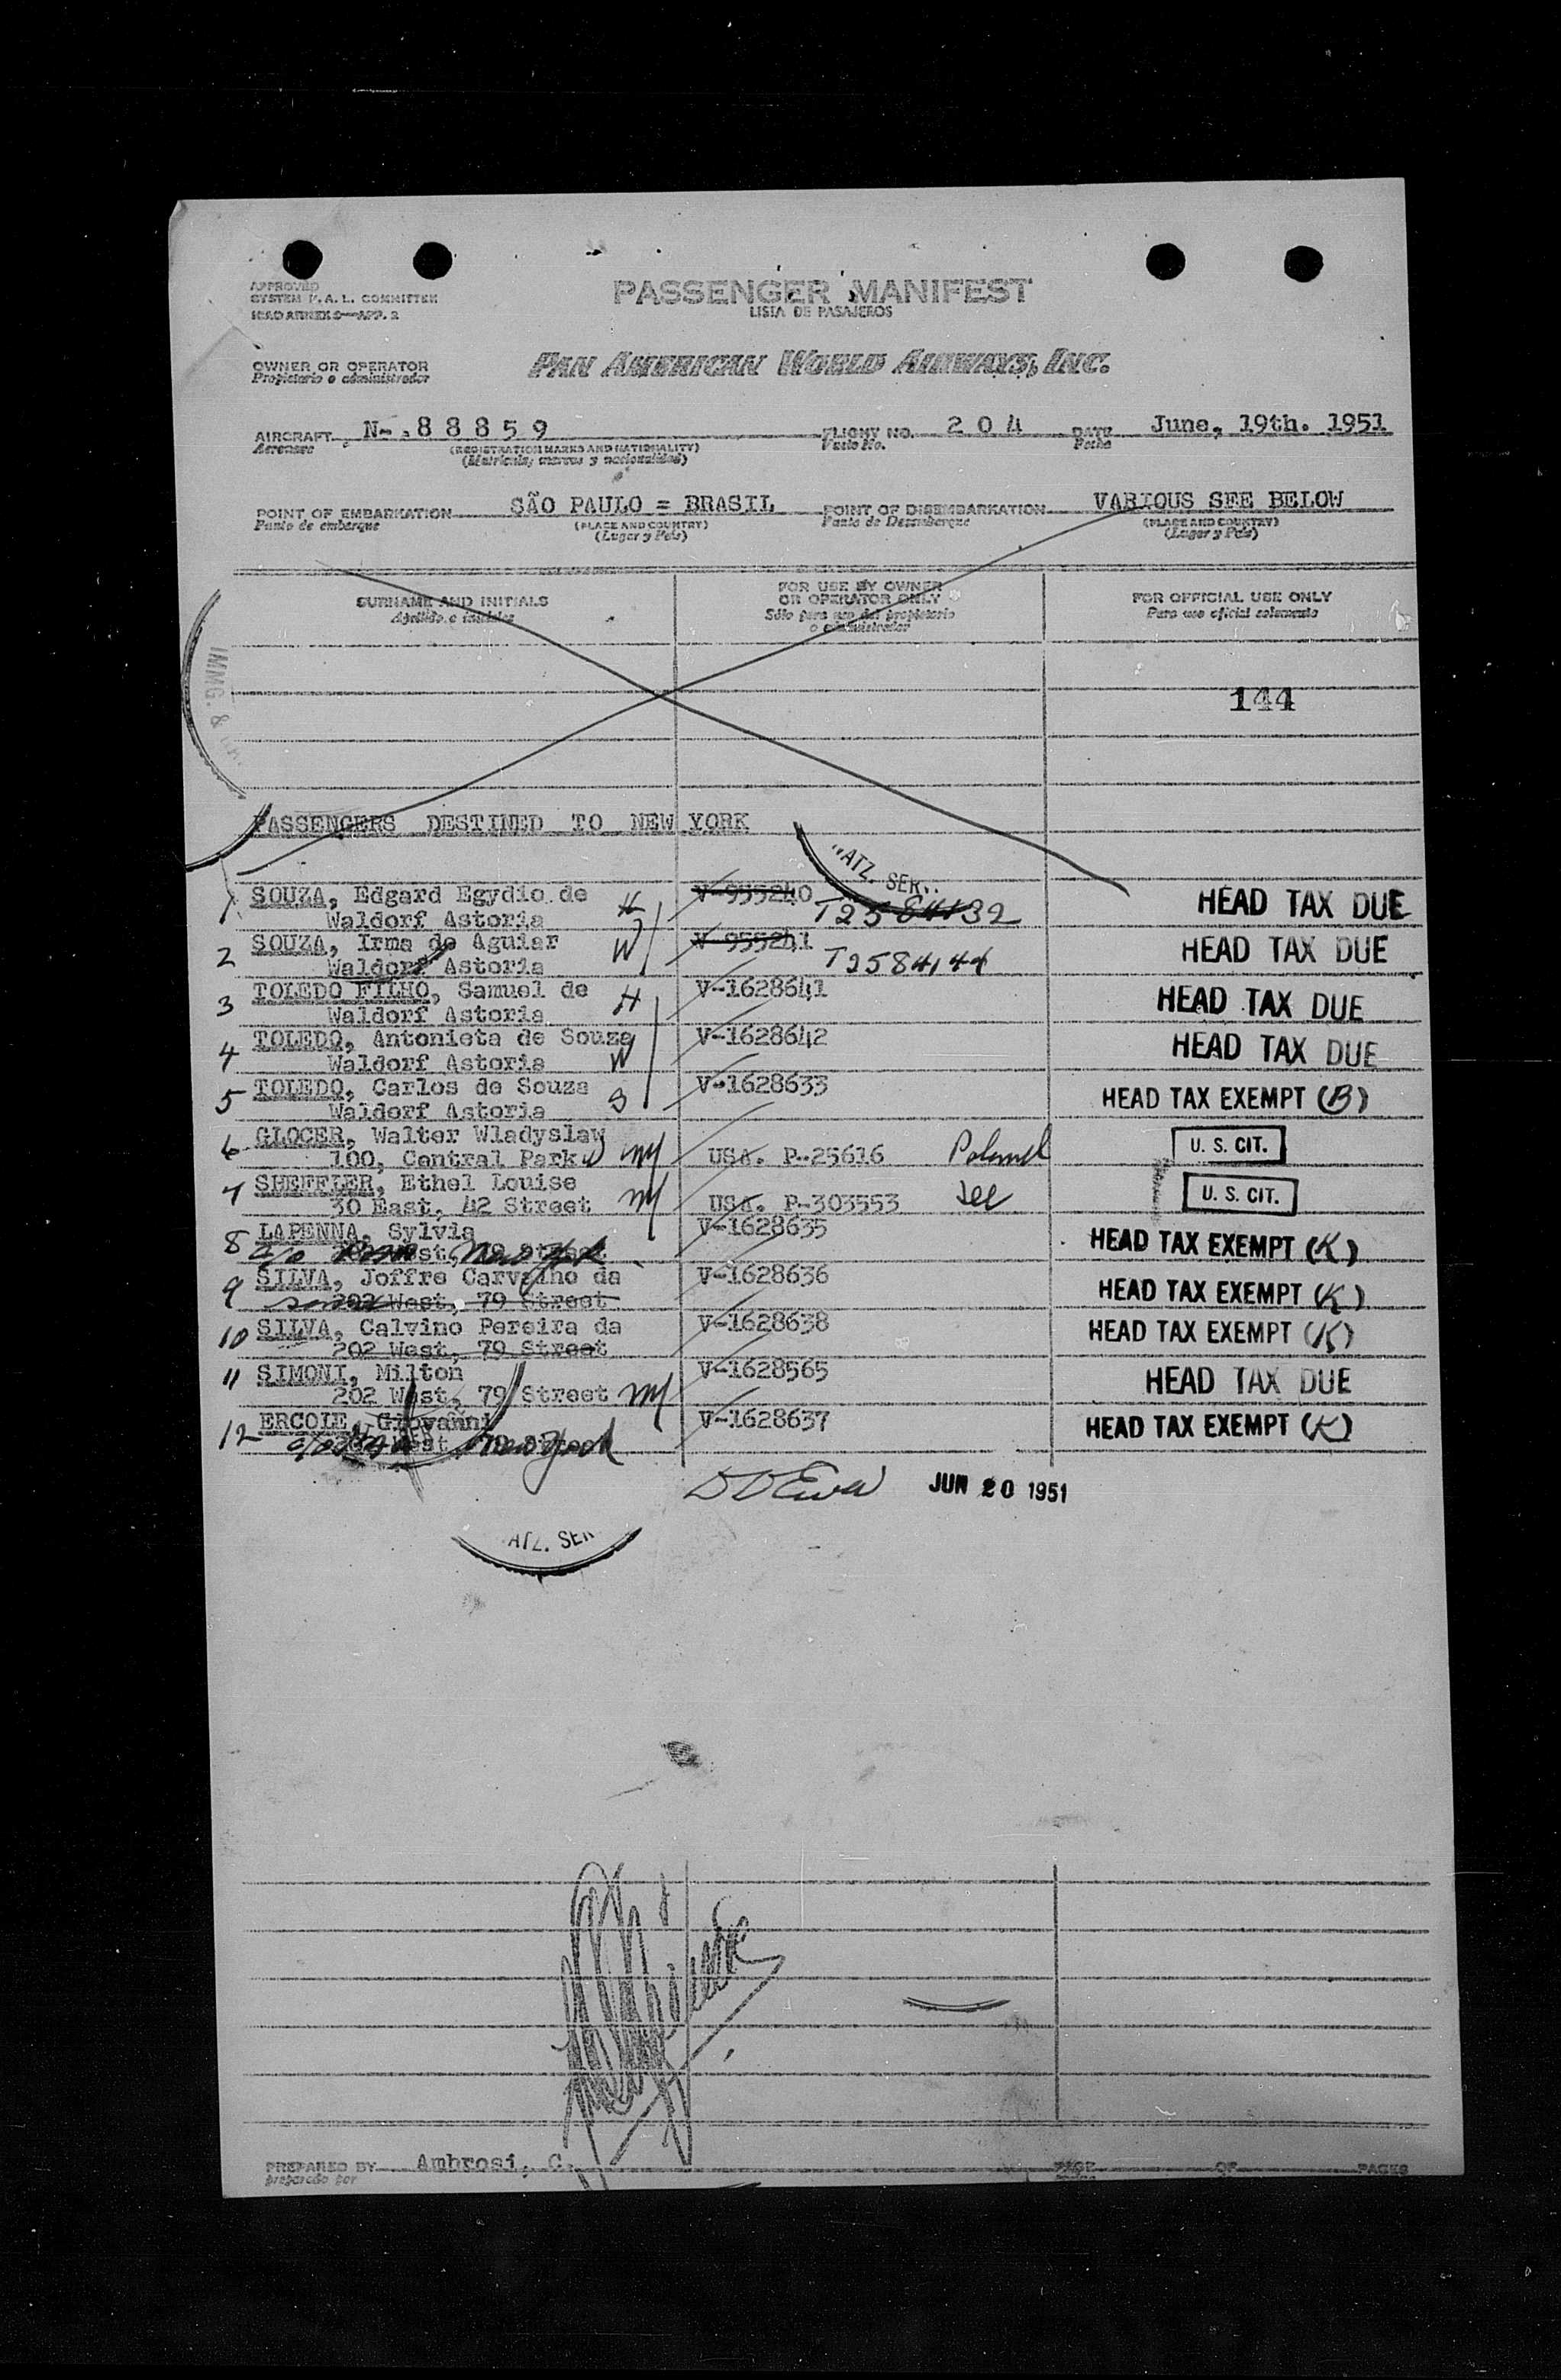 APPROVED
SYSTEM F. A. L. COMMITTEE
ICAO ANNEX 9—APP. 2
PASSENGER MANIFEST
LISTA DE PASAJEROS
OWNER OR OPERATOR
Propietario o administrador
PAN AMERICAN WORLD AIRWAYS, INC.
AIRCRAFT N-.88859 FLIGHT NO. 204 DATE June, 19th. 1951
Aeronave (REGISTRATION MARKS AND NATIONALITY) Vuelo No. Fecha
(Matrícula, marcas y nacionalidad)
POINT OF EMBARKATION SÃO PAULO = BRASIL POINT OF DISEMBARKATION VARIOUS SEE BELOW
Punto de embarque (PLACE AND COUNTRY) Punto de Desembarque (PLACE AND COUNTRY)
(Lugar y País) (Lugar y País)
SURNAME AND INITIALS FOR USE BY OWNER OR OPERATOR ONLY FOR OFFICIAL USE ONLY
Apellido e iniciales Sólo para uso del propietario o administrador Para uso oficial solamente
IMMG. &
144
PASSENGERS DESTINED TO NEW YORK
NATZ. SER.
1 SOUZA, Edgard Egydio de H V-955240 HEAD TAX DUE
Waldorf Astoria T2584132
2 SOUZA, Irma de Aguiar W V-955241 HEAD TAX DUE
Waldorf Astoria T2584144
3 TOLEDO FILHO, Samuel de H V-1628641 HEAD TAX DUE
Waldorf Astoria
4 TOLEDO, Antonieta de Souza W V-1628642 HEAD TAX DUE
Waldorf Astoria
5 TOLEDO, Carlos de Souza S V-1628633 HEAD TAX EXEMPT (B)
Waldorf Astoria
6 GLOCER, Walter Wladyslaw
100, Central Park W NY USA. P-25616 U. S. CIT.
7 SHEFFLER, Ethel Louise
30 East, 42 Street NY USA. P-303553 U. S. CIT.
8 LAPENNA, Sylvia V-1628635 HEAD TAX EXEMPT (K)
c/o New York
9 SILVA, Joffre Carvalho da V-1628636 HEAD TAX EXEMPT (K)
same 202 West, 79 Street
10 SILVA, Calvino Pereira da V-1628638 HEAD TAX EXEMPT (K)
202 West, 79 Street
11 SIMONI, Milton V-1628565 HEAD TAX DUE
202 West, 79 Street NY
12 ERCOLE, Giovanni V-1628637 HEAD TAX EXEMPT (K)
c/o West New York
JUN 20 1951
NATZ. SER
PREPARED BY Ambrosi, C. PAGE OF PAGES
preparado por